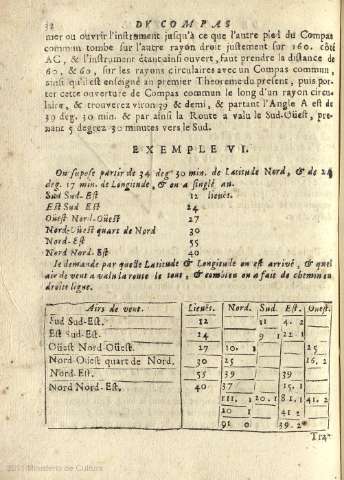 32 DV COMPAS
mer ou ouvrir l'instrument jusqu'à ce que l'autre pied du Compas
commun tombe sur l'autre rayon droit justement sur 160. côté
AC, & l'instrument étant ainsi ouvert, faut prendre la distance de
60, & 60, sur les rayons circulaires avec un Compas commun,
ainsi qu'il est enseigné au premier Theoreme du present, puis por-
ter cette ouverture de Compas commun le long d'un rayon circu-
laire, & trouverez viron 39 & demi, & partant l'Angle A est de
39 deg. 30 min. & par ainsi la Route a valu le Sud-Oüest, pre-
nant 5 degrez 30 minutes vers le Sud.
EXEMPLE VI.
On supose partir de 34 deg. 30 min. de Latitude Nord, & de 24
deg. 17 min. de Longitude, & on a singlé au.
Sud Sud-Est 12 lieuës.
Est Sud-Est 24
Oüest Nord-Oüest 27
Nord-Oüest quart de Nord 30
Nord-Est 55
Nord Nord-Est 40
Je demande par quelle Latitude & Longitude on est arrivé, & quel
air de vent a valu la route le tout, & combien on a fait de chemin en
droite ligne.
Airs de vent. Lieuës. Nord. Sud. Est. Ouest.
Sud Sud-Est. 12 11 4. 2
Est Sud-Est. 24 9 1 22. 1
Oüest Nord-Oüest. 27 10. 1 25
Nord-Oüest quart de Nord. 30 25 16. 2
Nord-Est. 55 39 39
Nord Nord-Est. 40 37 15. 1
111. 1 20. 1 81. 1 41. 2
20 1 41 2
91 0 39. 2
Tra-
2011 Ministerio de Cultura